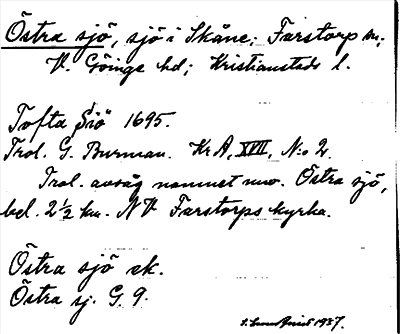 Östra sjö, sjö i Skåne; Farstorp sn;
V. Göinge hd; Kristianstads l.
Tofta Siö 1695.
Trol. G. Burman. Kr A, XVII, N:o 2.
Trol. avsåg namnet nuv. Östra sjö,
bel. 2 1/2 km. NV Farstorps kyrka.
Östra sjö ek.
Östra sj. G 9.
1937.